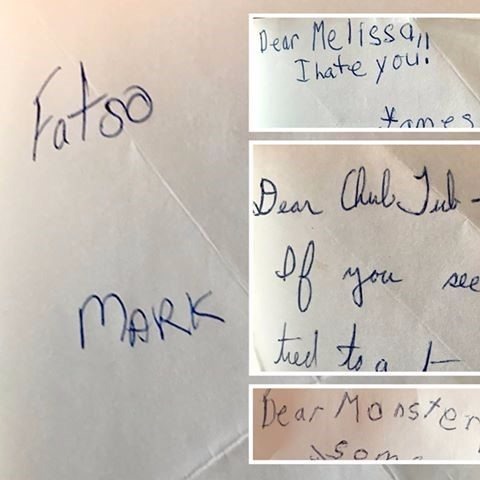 Fatso
MARK
Dear Melissa,
I hate you!
James
Dear Chub Tub -
If you see
tied to a
Dear Monster